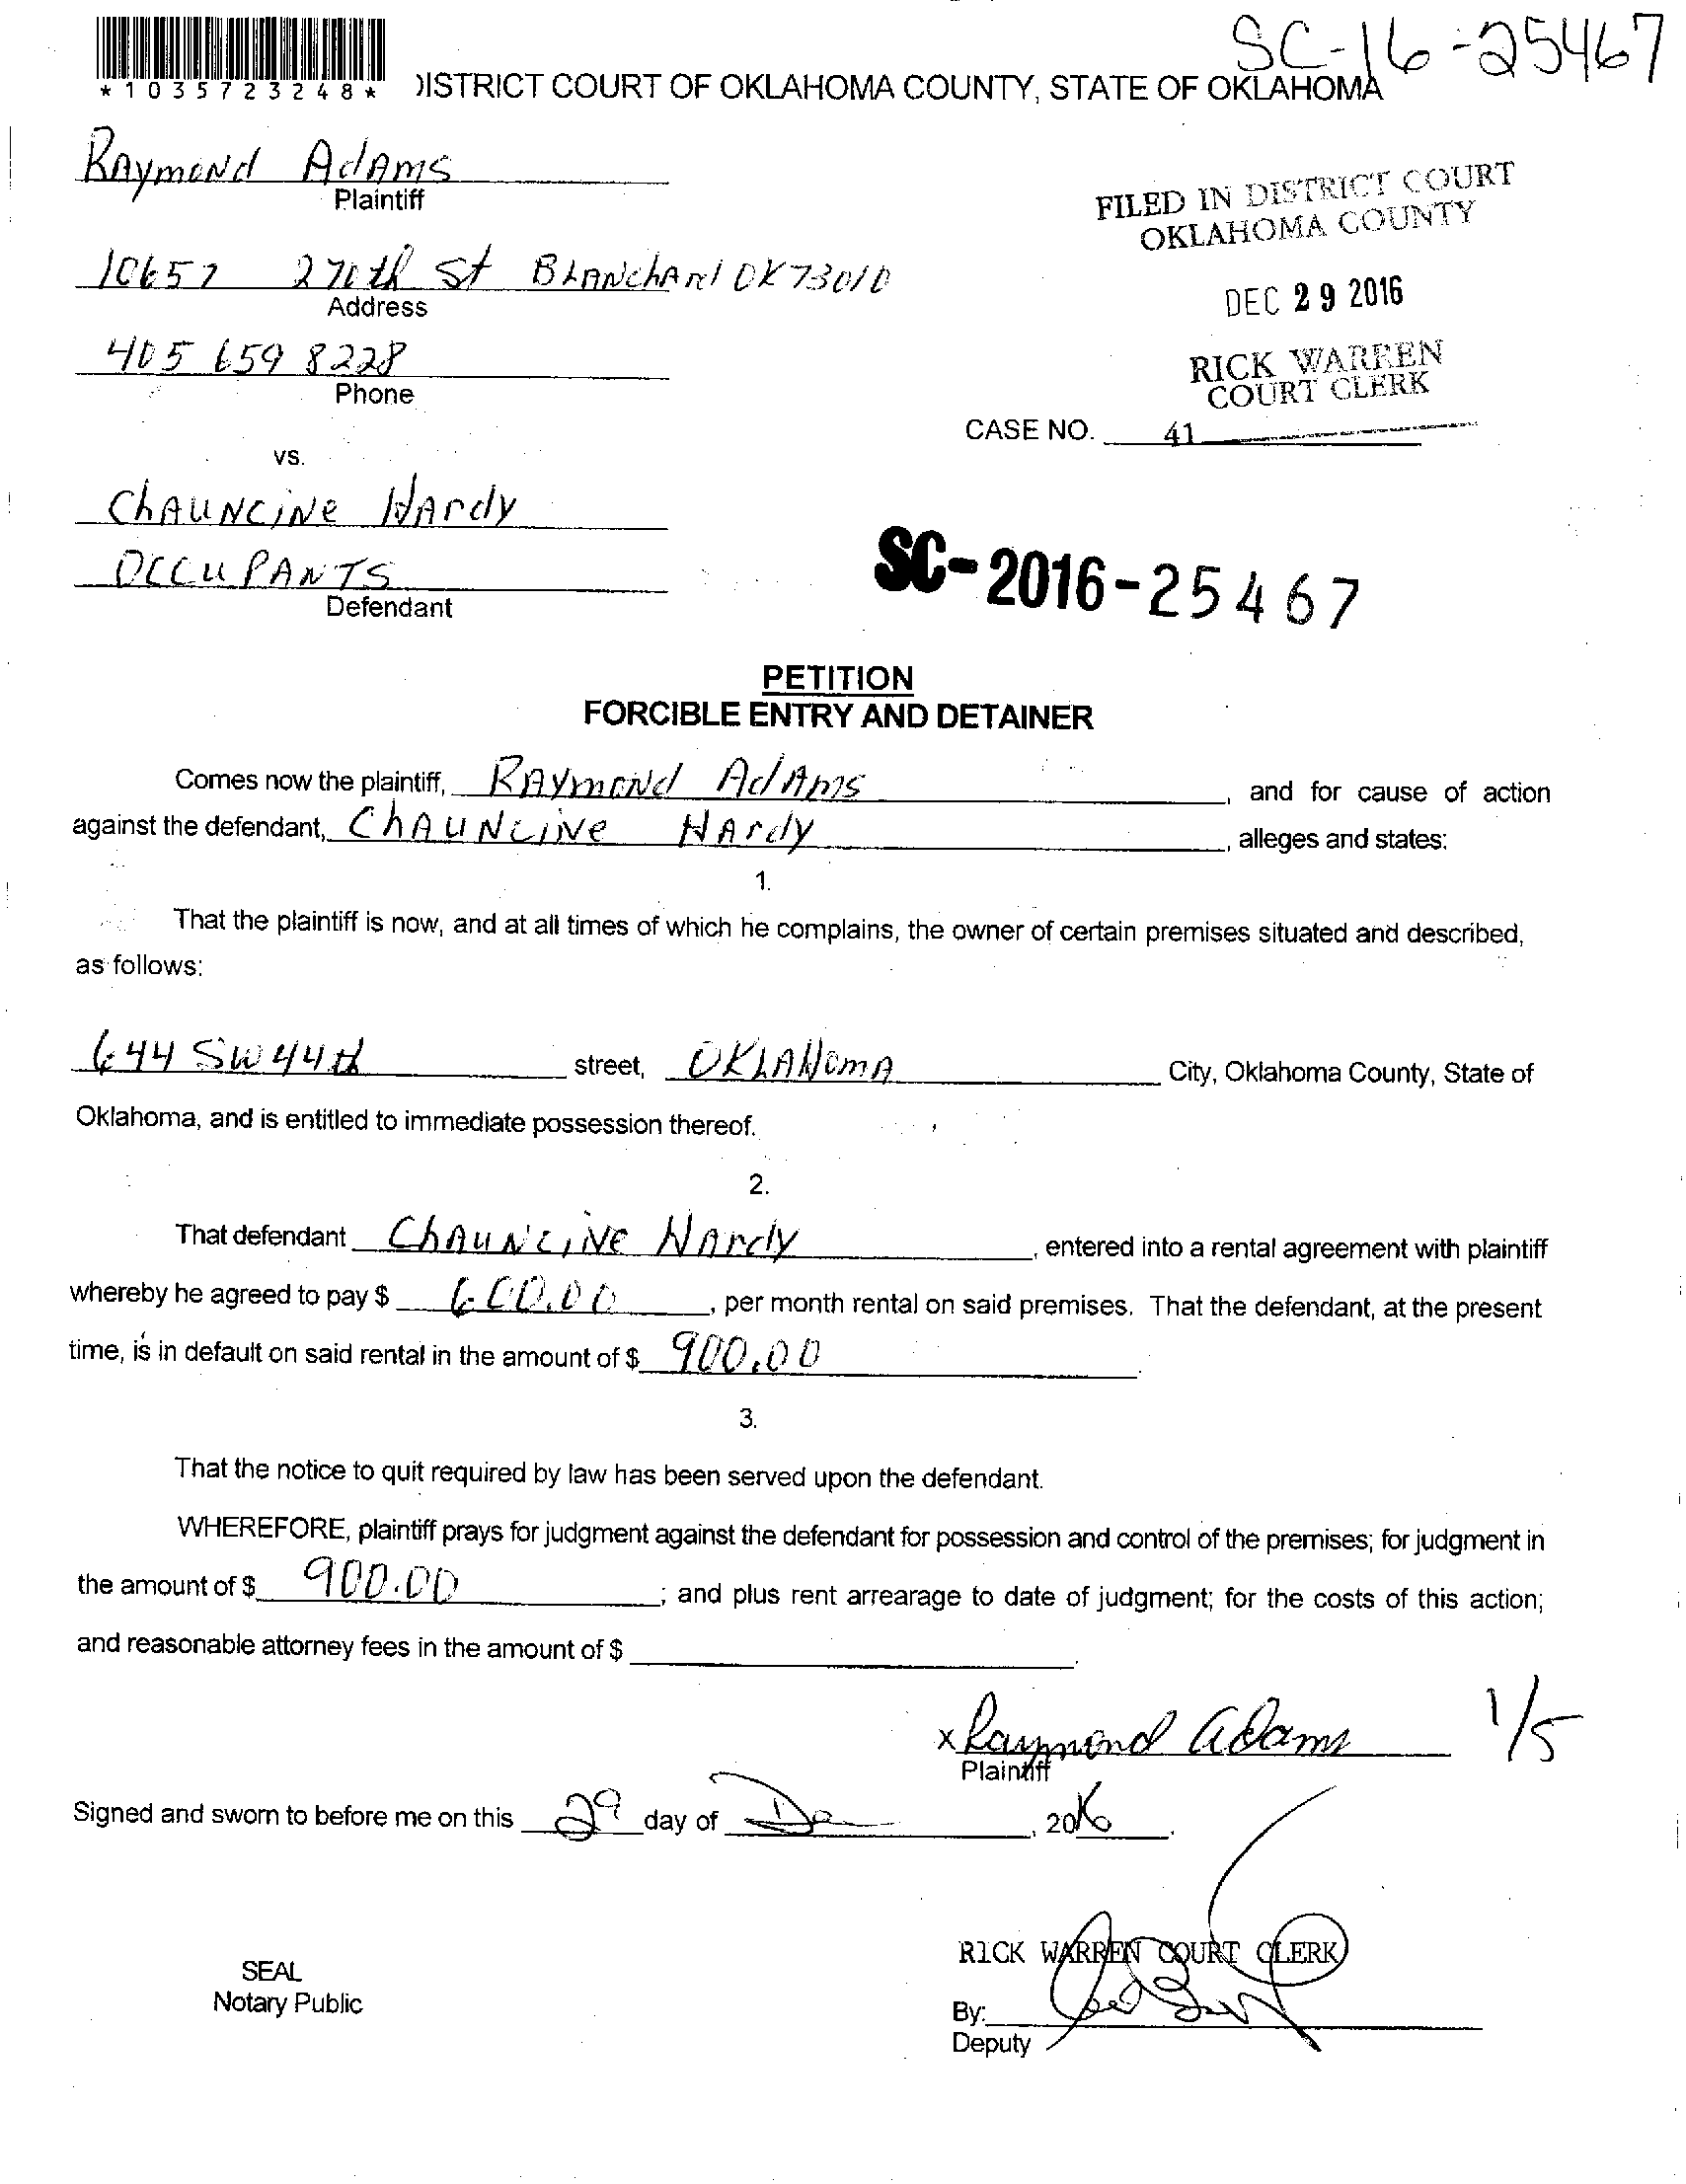 SC-16-25467
*1035723248*
DISTRICT COURT OF OKLAHOMA COUNTY, STATE OF OKLAHOMA
RAymoNd AdAms
Plaintiff
FILED IN DISTRICT COURT
OKLAHOMA COUNTY
10657 270th St BLANchArd OK 73010
Address
DEC 29 2016
405 659 8228
Phone
RICK WARREN
COURT CLERK
CASE NO.
41
vs.
ChAUNCiNe HArdy
OCCUPANTS
Defendant
SC-2016-25467
PETITION
FORCIBLE ENTRY AND DETAINER
Comes now the plaintiff, RAymoNd AdAms, and for cause of action
against the defendant, ChAUNCiNe HArdy, alleges and states:
1.
That the plaintiff is now, and at all times of which he complains, the owner of certain premises situated and described,
as follows:
644 SW 44th street, OKLAHomA City, Oklahoma County, State of
Oklahoma, and is entitled to immediate possession thereof.
2.
That defendant ChAUNCiNe HArdy, entered into a rental agreement with plaintiff
whereby he agreed to pay $ 600.00, per month rental on said premises. That the defendant, at the present
time, is in default on said rental in the amount of $ 900.00
3.
That the notice to quit required by law has been served upon the defendant.
WHEREFORE, plaintiff prays for judgment against the defendant for possession and control of the premises; for judgment in
the amount of $ 900.00; and plus rent arrearage to date of judgment; for the costs of this action;
and reasonable attorney fees in the amount of $
x Raymond Adams 1/5
Plaintiff
Signed and sworn to before me on this 29 day of De, 2016.
RICK WARREN COURT CLERK
SEAL
Notary Public
By:
Deputy